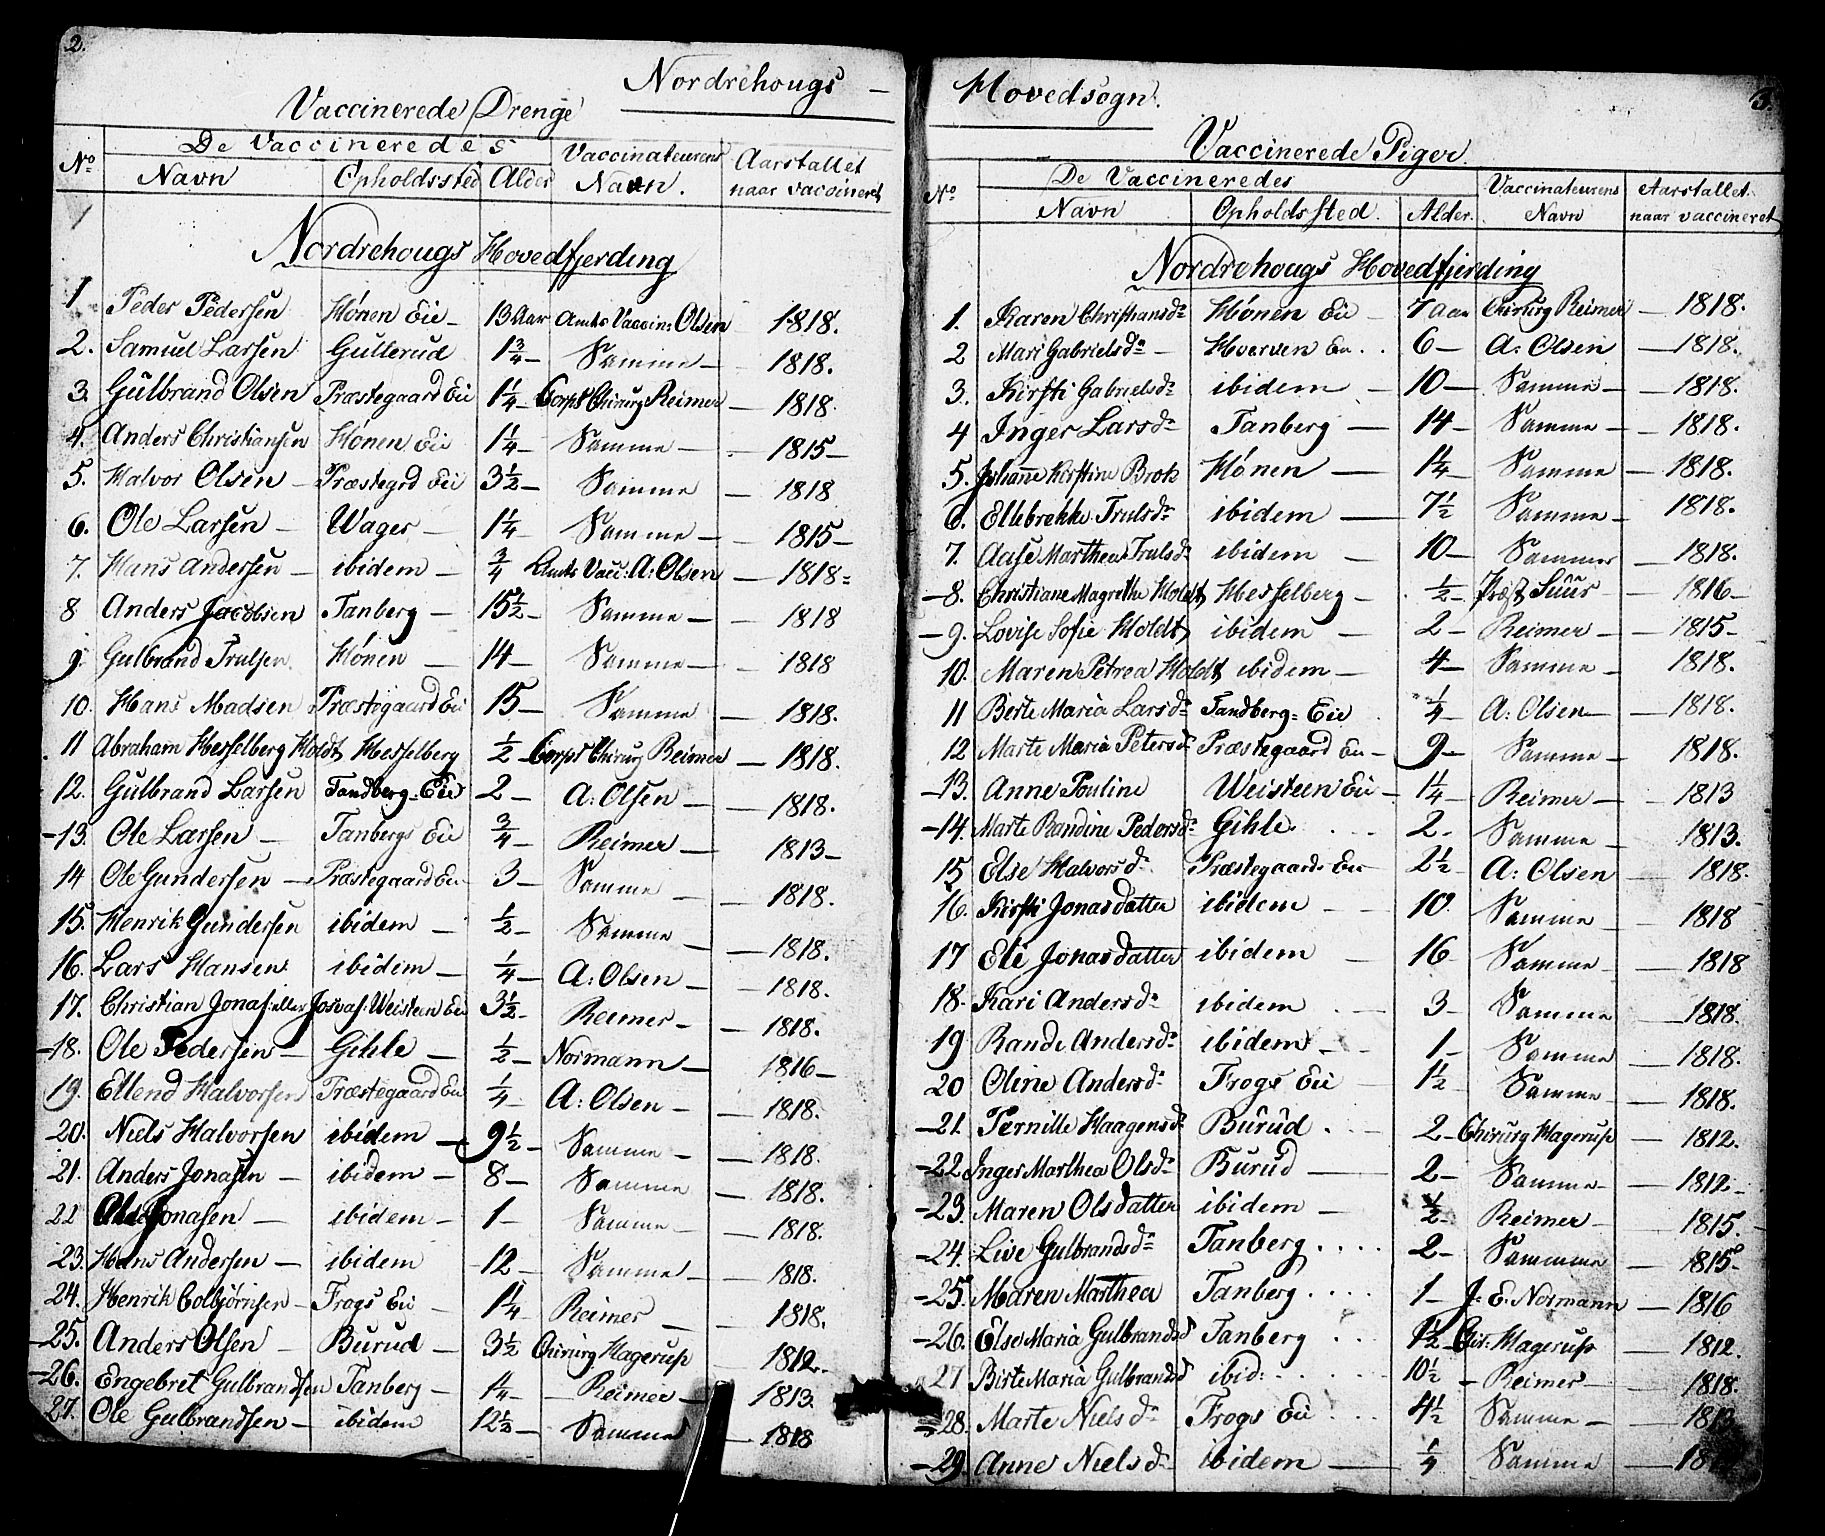 2.
Nordrehougs —
Vaccinerede Drenge
No De Vaccineredes Vaccinateurens Navn. Aarstallet naar vaccineret
Navn Opholdssted Alder
Nordrehougs Hovedfjerding
1 Peder Pedersen Hónen Eie 13 Aar Amts Vaccin: Olsen 1818.
2. Samuel Larsen Gullerud 1 3/4 Samme 1818.
3. Gulbrand Olsen Præstegaard Eie 1 1/4 Corps Chirurg Reimer 1818.
4. Anders Christiansen Hónen Eie 1 1/4 Samme 1815
5. Halvor Olsen Præstegrd Eie 3 1/2 Samme 1818
6. Ole Larsen Wager 1 1/4 Samme 1815
7. Hans Andersen ibidem 3/4 Amts Vacc: A: Olsen 1818
8 Anders Jacobsen Tanberg 15 1/2 Samme 1818
9. Gulbrand Trulsen Hónen 14 Samme 1818
10. Hans Madsen Præstegaard Eie 15 Samme 1818.
11 Abraham Hesselberg Holdt Hesselberg 1/2 Corps Chirurg Reimer 1818.
12. Gulbrand Larsen Tandberg-Eie 2 A: Olsen 1818.
13. Ole Larsen Tanbergs Eie 3/4 Reimer 1813
14 Ole Gundersen Præstegaard Eie 3 Samme 1818.
15. Henrik Gundersen ibidem 1/2 Samme 1818.
16. Lars Hansen ibidem 1/4 A: Olsen 1818.
17. Christian Jonas: eller Josvas: Weisteen Eie 3 1/2 Reimer 1818.
18. Ole Pedersen Gihle 1/2 Normann 1816
19. Ellend Halvorsen Præstegaard Eie 1/4 A: Olsen 1818.
20. Niels Halvorsen ibidem 9 1/2 Samme 1818.
21. Anders Jonasen ibidem 8 Samme 1818.
22 Jonasen ibidem 1 Samme 1818.
23. Hans Andersen ibidem 12 Samme 1818.
24. Henrik Colbjørnsen Frogs Eie 1 1/4 Reimer 1818.
25. Anders Olsen Burud 3 1/2 Chirurg Hagerup 1812.
26. Engebret Gulbrandsen Tanberg 1 1/4 Reimer 1813.
27. Ole Gulbrandsen ibidem 12 1/2 Samme 1818
3.
Hovedsogn.
Vaccinerede Piger.
No De Vaccineredes Vaccinateurens Navn Aarstallet naar vaccineret
Navn Opholdssted. Alder.
Nordrehougs Hovedfjerding
1. Karen Christiansda Hónen Eie 7 Aar Chirurg Reimer 1818.
2 Mari Gabrielsda Hverven Eie 6 A: Olsen 1818.
3. Kirsti Gabrielsda ibidem 10 Samme 1818.
4 Inger Larsda Tanberg 14 Samme 1818.
5. Johanne Kirstine Brok Hónen 1 1/4 Samme 1818.
6. Ellebrekke Trulsda ibidem 7 1/2 Samme 1818.
7. Aase Marthea Trulsda ibidem 10 Samme 1818.
8. Christiane Magrethe Holdt Hesselberg 1/2 Præst Suur 1816
9. Lovise Sofie Holdt ibidem 2 Reimer 1815
10. Maren Petrea Holdt ibidem 4 Samme 1818.
11 Birte Maria Larsda Tandberg-Eie 1/4 A: Olsen 1818.
12 Marte Maria Petersda Præstegaard Eie 9 Samme 1818.
13. Anne Pouline Weisteen Eie 1 1/4 Reimer 1813
14. Marte Randine Pedersda Gihle 2 Samme 1813.
15 Else Halvorsda Præstegaards Eie 2 1/2 A: Olsen 1818.
16. Kirsti Jonasdatter ibidem 10 Samme 1818
17 Eli Jonasdatter ibidem 16 Samme 1818
18. Kari Andersda ibidem 3 Samme 1818.
19 Rande Andersda ibidem 1 Samme 1818.
20 Oline Andersda Frogs Eie 1 1/2 Samme 1818.
21. Pernille Haagensda Burud 2 Chirurg Hagerup 1812.
22. Inger Marthea Olsda Burud 2 Samme 1812
23. Maren Olsdatter ibidem 1/2 Reimer 1815.
24. Live Gulbrandsda Tanberg 2 Samme 1815
25. Maren Marthea Tanberg 1 J. E. Normann 1816
26. Else Maria Gulbrandsd Tanberg 1 1/2 Chir: Hagerup 1812.
27 Birte Maria Gulbrandsd ibid: 10 1/2 Reimer 1818.
28. Marte Nielsda Frogs Eie 4 1/2 Samme 1813
29. Anne Nielsda ibidem 1/4 Samme